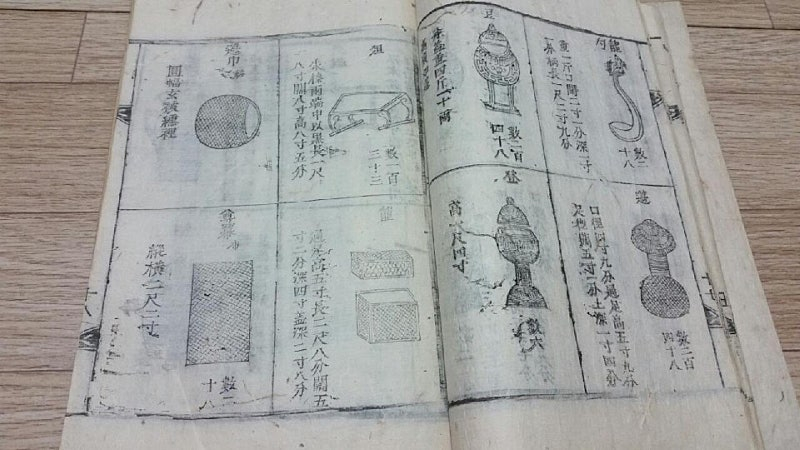 龍勺
重一斤口闊二寸一分深一寸
一分柄長一尺二寸九分
數二
十八
豆
重四斤十兩
數二百
四十八
籩
口徑四寸九分通足高五寸九分
足徑闊五寸一分深一寸四分
數二百
四十八
登
高一尺四寸
數六
俎
朱漆兩端中以黑長一尺
八寸闊八寸高八寸五分
數一百
三十三
籩巾
圓幅玄被纁裡
篚
通足高五寸長二尺八分闊五
寸二分深四寸盖深二寸八分
尊羃
縱橫二尺二寸
數二
十八